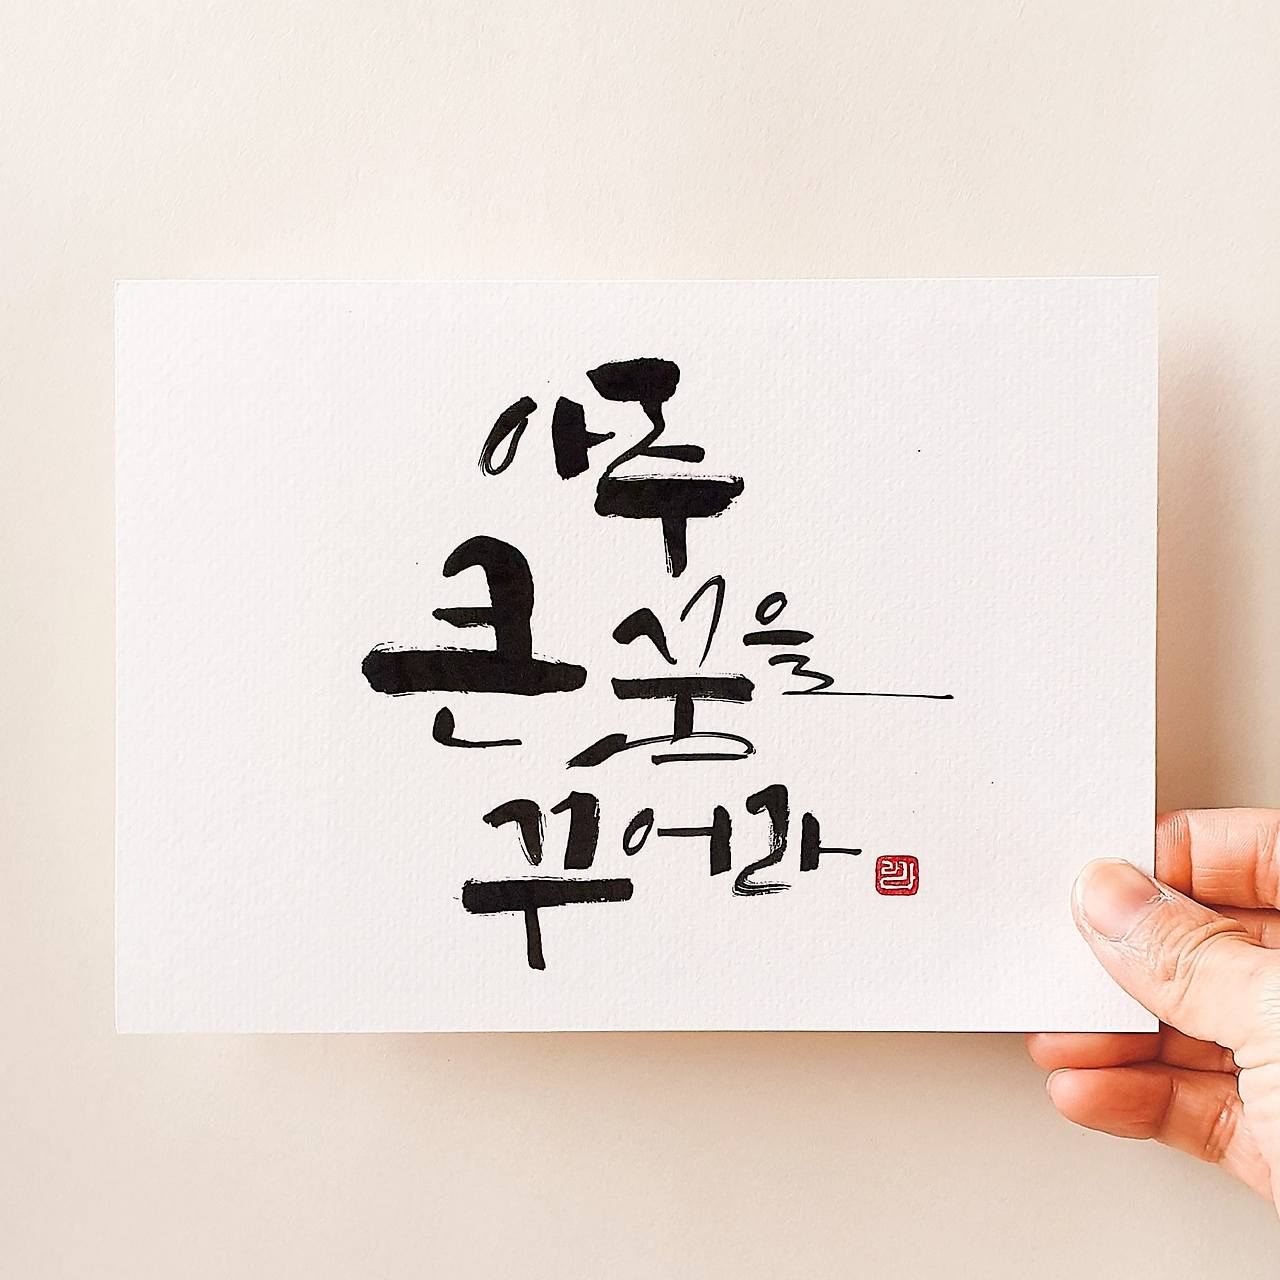 아주
큰 꿈을
꾸어라